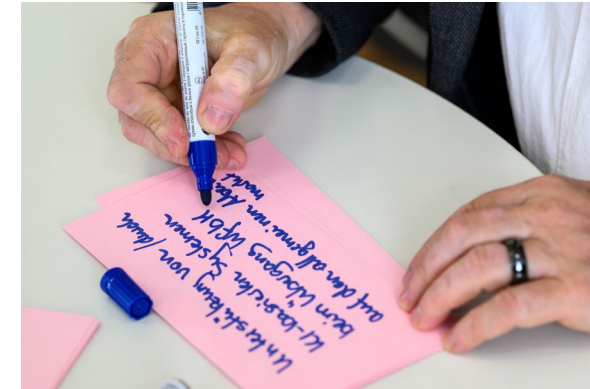 Unterstützung von / durch
KI-basierten Systemen
beim Übergang WfbM
auf den allgemeinen Arbeits
markt